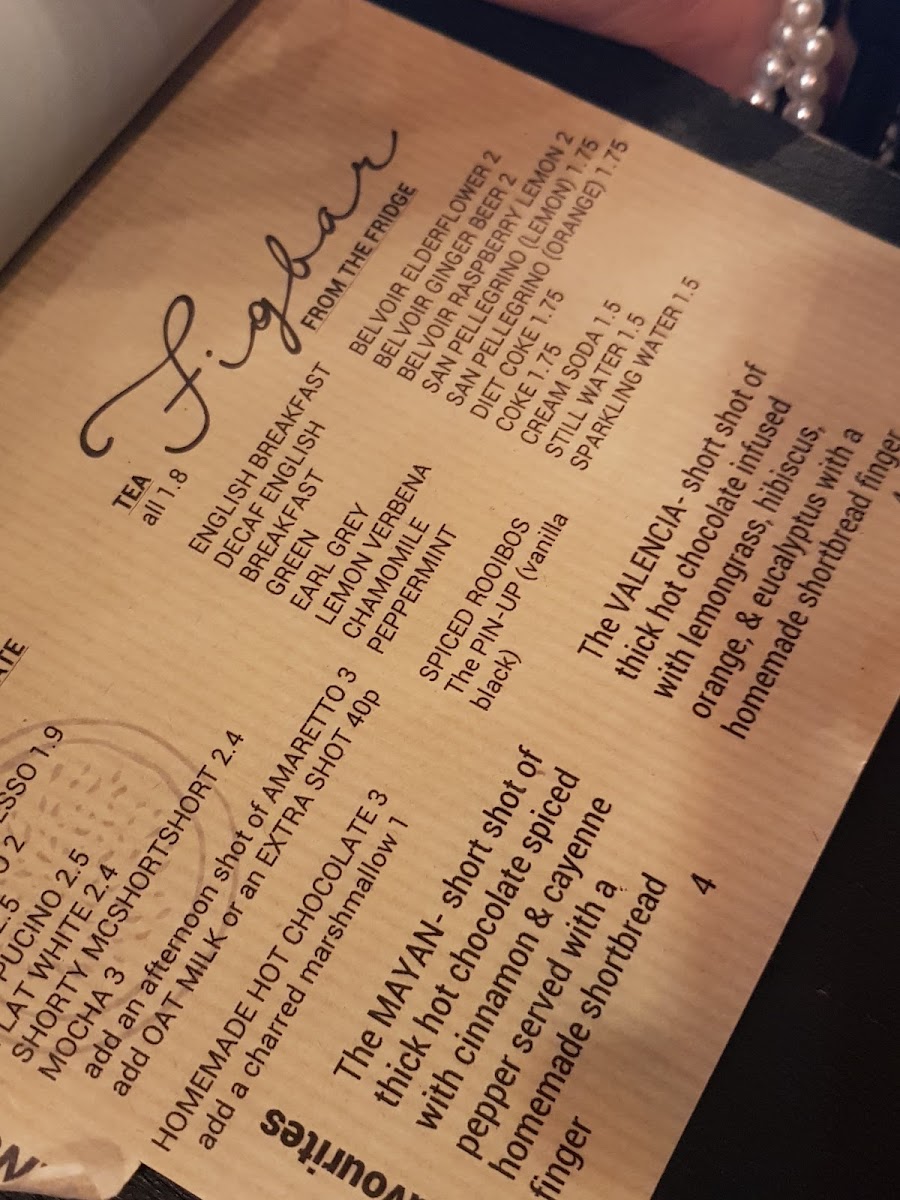 Figbar
TEA
all 1.8
ENGLISH BREAKFAST
DECAF ENGLISH
BREAKFAST
GREEN
EARL GREY
LEMON VERBENA
CHAMOMILE
PEPPERMINT
SPICED ROOIBOS
The PIN-UP (vanilla
black)
FROM THE FRIDGE
BELVOIR ELDERFLOWER 2
BELVOIR GINGER BEER 2
BELVOIR RASPBERRY LEMON 2
SAN PELLEGRINO (LEMON) 1.75
SAN PELLEGRINO (ORANGE) 1.75
DIET COKE 1.75
COKE 1.75
CREAM SODA 1.5
STILL WATER 1.5
SPARKLING WATER 1.5
ATE
ESSO 1.9
O 2
2.5
PUCINO 2.5
LAT WHITE 2.4
SHORTY MCSHORTSHORT 2.4
MOCHA 3
add an afternoon shot of AMARETTO 3
add OAT MILK or an EXTRA SHOT 40p
HOMEMADE HOT CHOCOLATE 3
add a charred marshmallow 1
The MAYAN- short shot of
thick hot chocolate spiced
with cinnamon & cayenne
pepper served with a
homemade shortbread
finger
4
The VALENCIA- short shot of
thick hot chocolate infused
with lemongrass, hibiscus,
orange, & eucalyptus with a
homemade shortbread finger
vourites